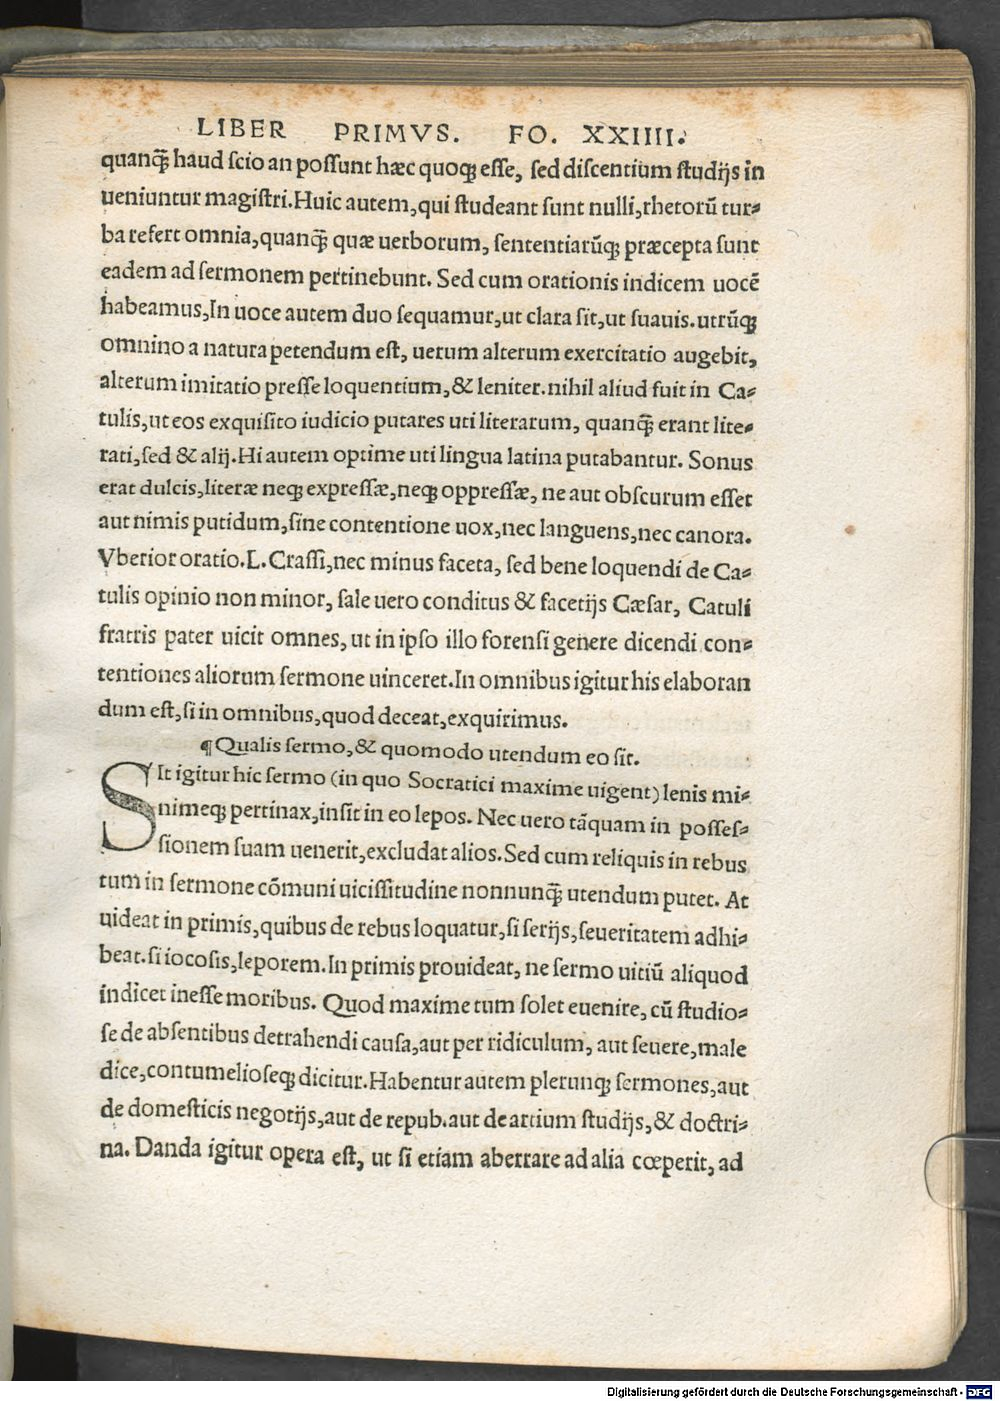 LIBER PRIMVS. FO. XXIIII.
quanq̃ haud scio an possunt hæc quoqꝫ esse, sed discentium studijs in
ueniuntur magistri. Huic autem, qui studeant sunt nulli, rhetorũ tur⸗
ba refert omnia, quanq̃ quæ uerborum, sententiarũqꝫ præcepta sunt
eadem ad sermonem pertinebunt. Sed cum orationis indicem uocẽ
habeamus, In uoce autem duo sequamur, ut clara sit, ut suauis. utrũqꝫ
omnino a natura petendum est, uerum alterum exercitatio augebit,
alterum imitatio presse loquentium, & leniter. nihil aliud fuit in Ca⸗
tulis, ut eos exquisito iudicio putares uti literarum, quanq̃ erant lite⸗
rati, sed & alij. Hi autem optime uti lingua latina putabantur. Sonus
erat dulcis, literæ neqꝫ expressæ, neqꝫ oppressæ, ne aut obscurum esset
aut nimis putidum, sine contentione uox, nec languens, nec canora.
Vberior oratio. L. Crassi, nec minus faceta, sed bene loquendi de Ca⸗
tulis opinio non minor, sale uero conditus & facetijs Cæsar, Catuli
fratris pater uicit omnes, ut in ipso illo forensi genere dicendi con⸗
tentiones aliorum sermone uinceret. In omnibus igitur his elaboran
dum est, si in omnibus, quod deceat, exquirimus.
¶ Qualis sermo, & quomodo utendum eo sit.
SIt igitur hic sermo (in quo Socratici maxime uigent) lenis mi⸗
nimeqꝫ pertinax, insit in eo lepos. Nec uero tãquam in posses⸗
sionem suam uenerit, excludat alios. Sed cum reliquis in rebus
tum in sermone cõmuni uicissitudine nonnunq̃ utendum putet. At
uideat in primis, quibus de rebus loquatur, si serijs, seueritatem adhi⸗
beat. si iocosis, leporem. In primis prouideat, ne sermo uitiũ aliquod
indicet inesse moribus. Quod maxime tum solet euenire, cũ studio⸗
se de absentibus detrahendi causa, aut per ridiculum, aut seuere, male
dice, contumelioseqꝫ dicitur. Habentur autem plerunqꝫ sermones, aut
de domesticis negotijs, aut de repub. aut de artium studijs, & doctri⸗
na. Danda igitur opera est, ut si etiam aberrare ad alia cœperit, ad
Digitalisierung gefördert durch die Deutsche Forschungsgemeinschaft - DFG